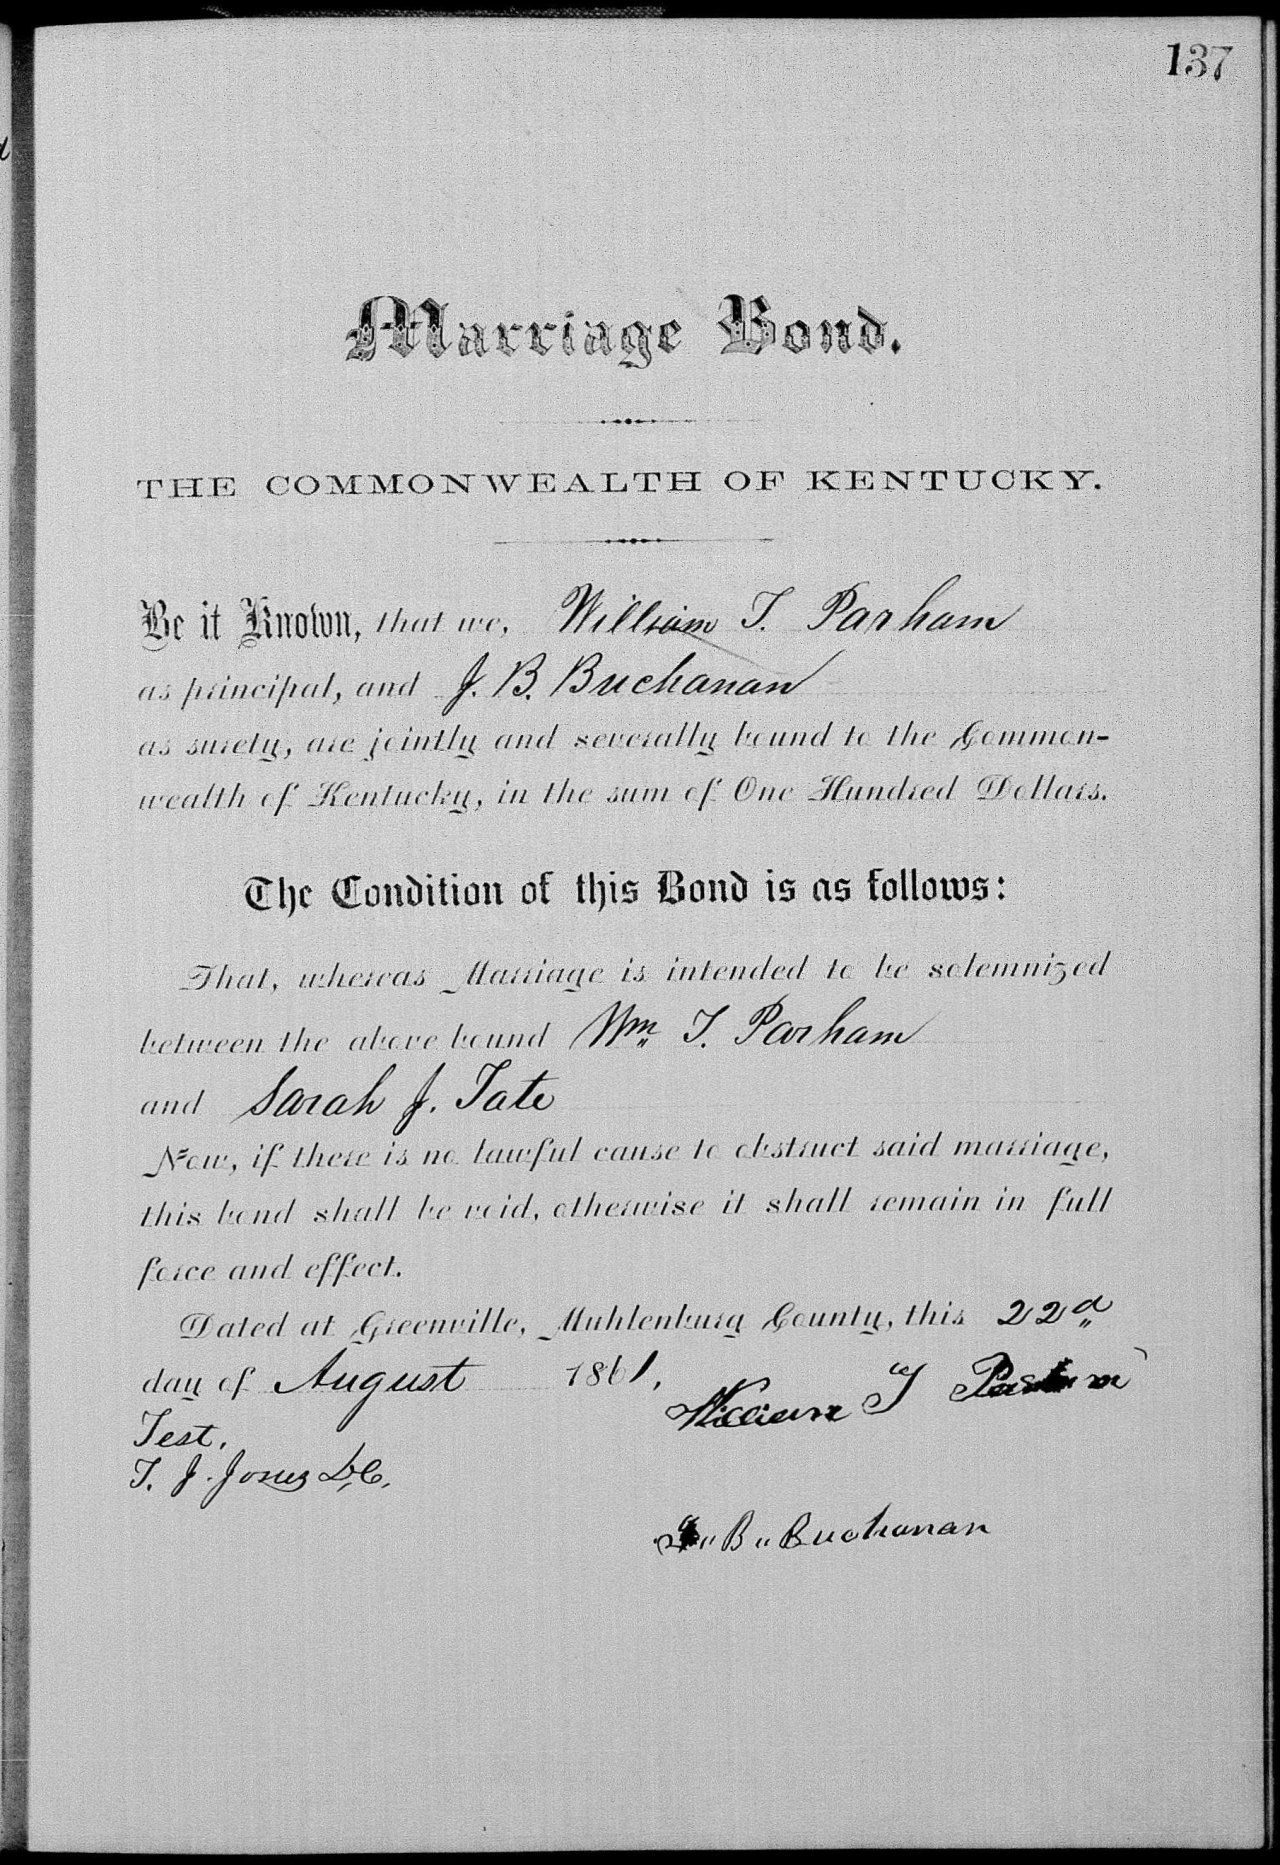 137
Marriage Bond.
THE COMMONWEALTH OF KENTUCKY.
Be it Known, that we, William T. Parham
as principal, and J. B. Buchanan
as surety, are jointly and severally bound to the Common-
wealth of Kentucky, in the sum of One Hundred Dollars.
The Condition of this Bond is as follows:
That, whereas Marriage is intended to be solemnized
between the above bound Wm. T. Parham
and Sarah J. Tate
Now, if there is no lawful cause to obstruct said marriage,
this bond shall be void, otherwise it shall remain in full
force and effect.
Dated at Greenville, Muhlenburg County, this 22d
day of August 1861,
William T
Test,
T. J. Jones D.C.
B. Buchanan